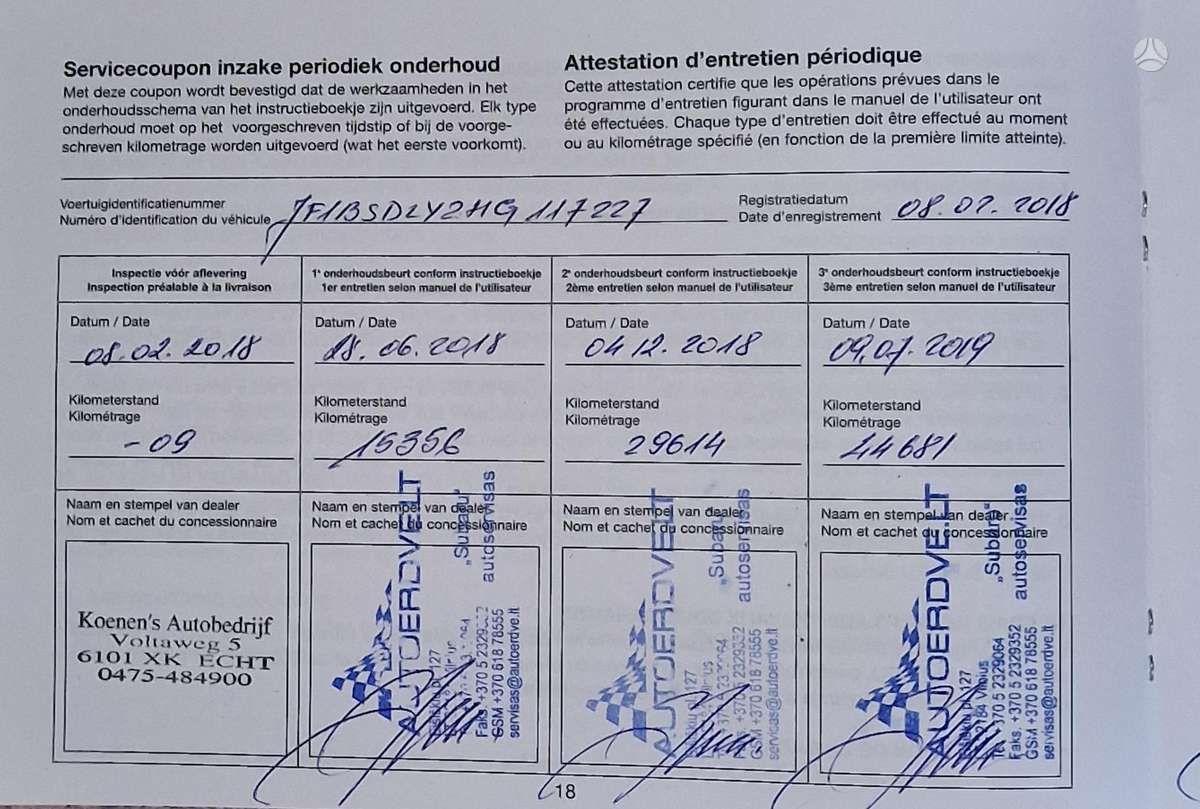 Servicecoupon inzake periodiek onderhoud
Met deze coupon wordt bevestigd dat de werkzaamheden in het
onderhoudsschema van het instructieboekje zijn uitgevoerd. Elk type
onderhoud moet op het voorgeschreven tijdstip of bij de voorge-
schreven kilometrage worden uitgevoerd (wat het eerste voorkomt).
Attestation d'entretien périodique
Cette attestation certifie que les opérations prévues dans le
programme d'entretien figurant dans le manuel de l'utilisateur ont
été effectuées. Chaque type d'entretien doit être effectué au moment
ou au kilométrage spécifié (en fonction de la première limite atteinte).
Voertuigidentificatienummer
Numéro d'identification du véhicule
JF1BSDLY2HG117227
Registratiedatum
Date d'enregistrement
08.02.2018
Inspectie vóór aflevering
Inspection préalable à la livraison
Datum / Date
08.02.2018
Kilometerstand
Kilométrage
-09
Naam en stempel van dealer
Nom et cachet du concessionnaire
Koenen's Autobedrijf
Voltaweg 5
6101 XK ECHT
0475-484900
1e onderhoudsbeurt conform instructieboekje
1er entretien selon manuel de l'utilisateur
Datum / Date
18.06.2018
Kilometerstand
Kilométrage
15356
Naam en stempel van dealer
Nom et cachet du concessionnaire
AUTOERDVELT
„Subaru"
autoservisas
GSM +370 618 78555
servisas@autoerdve.lt
2e onderhoudsbeurt conform instructieboekje
2ème entretien selon manuel de l'utilisateur
Datum / Date
04.12.2018
Kilometerstand
Kilométrage
29614
Naam en stempel van dealer
Nom et cachet du concessionnaire
AUTOERDVELT
„Subaru"
autoservisas
+370 5 2329352
GSM +370 618 78555
servisas@autoerdve.lt
3e onderhoudsbeurt conform instructieboekje
3ème entretien selon manuel de l'utilisateur
Datum / Date
09.07.2019
Kilometerstand
Kilométrage
44681
Naam en stempel van dealer
Nom et cachet du concessionnaire
AUTOERDVELT
„Subaru"
autoservisas
127
Vilnius
+370 5 2329064
Faks. +370 5 2329352
GSM +370 618 78555
servisas@autoerdve.lt
18